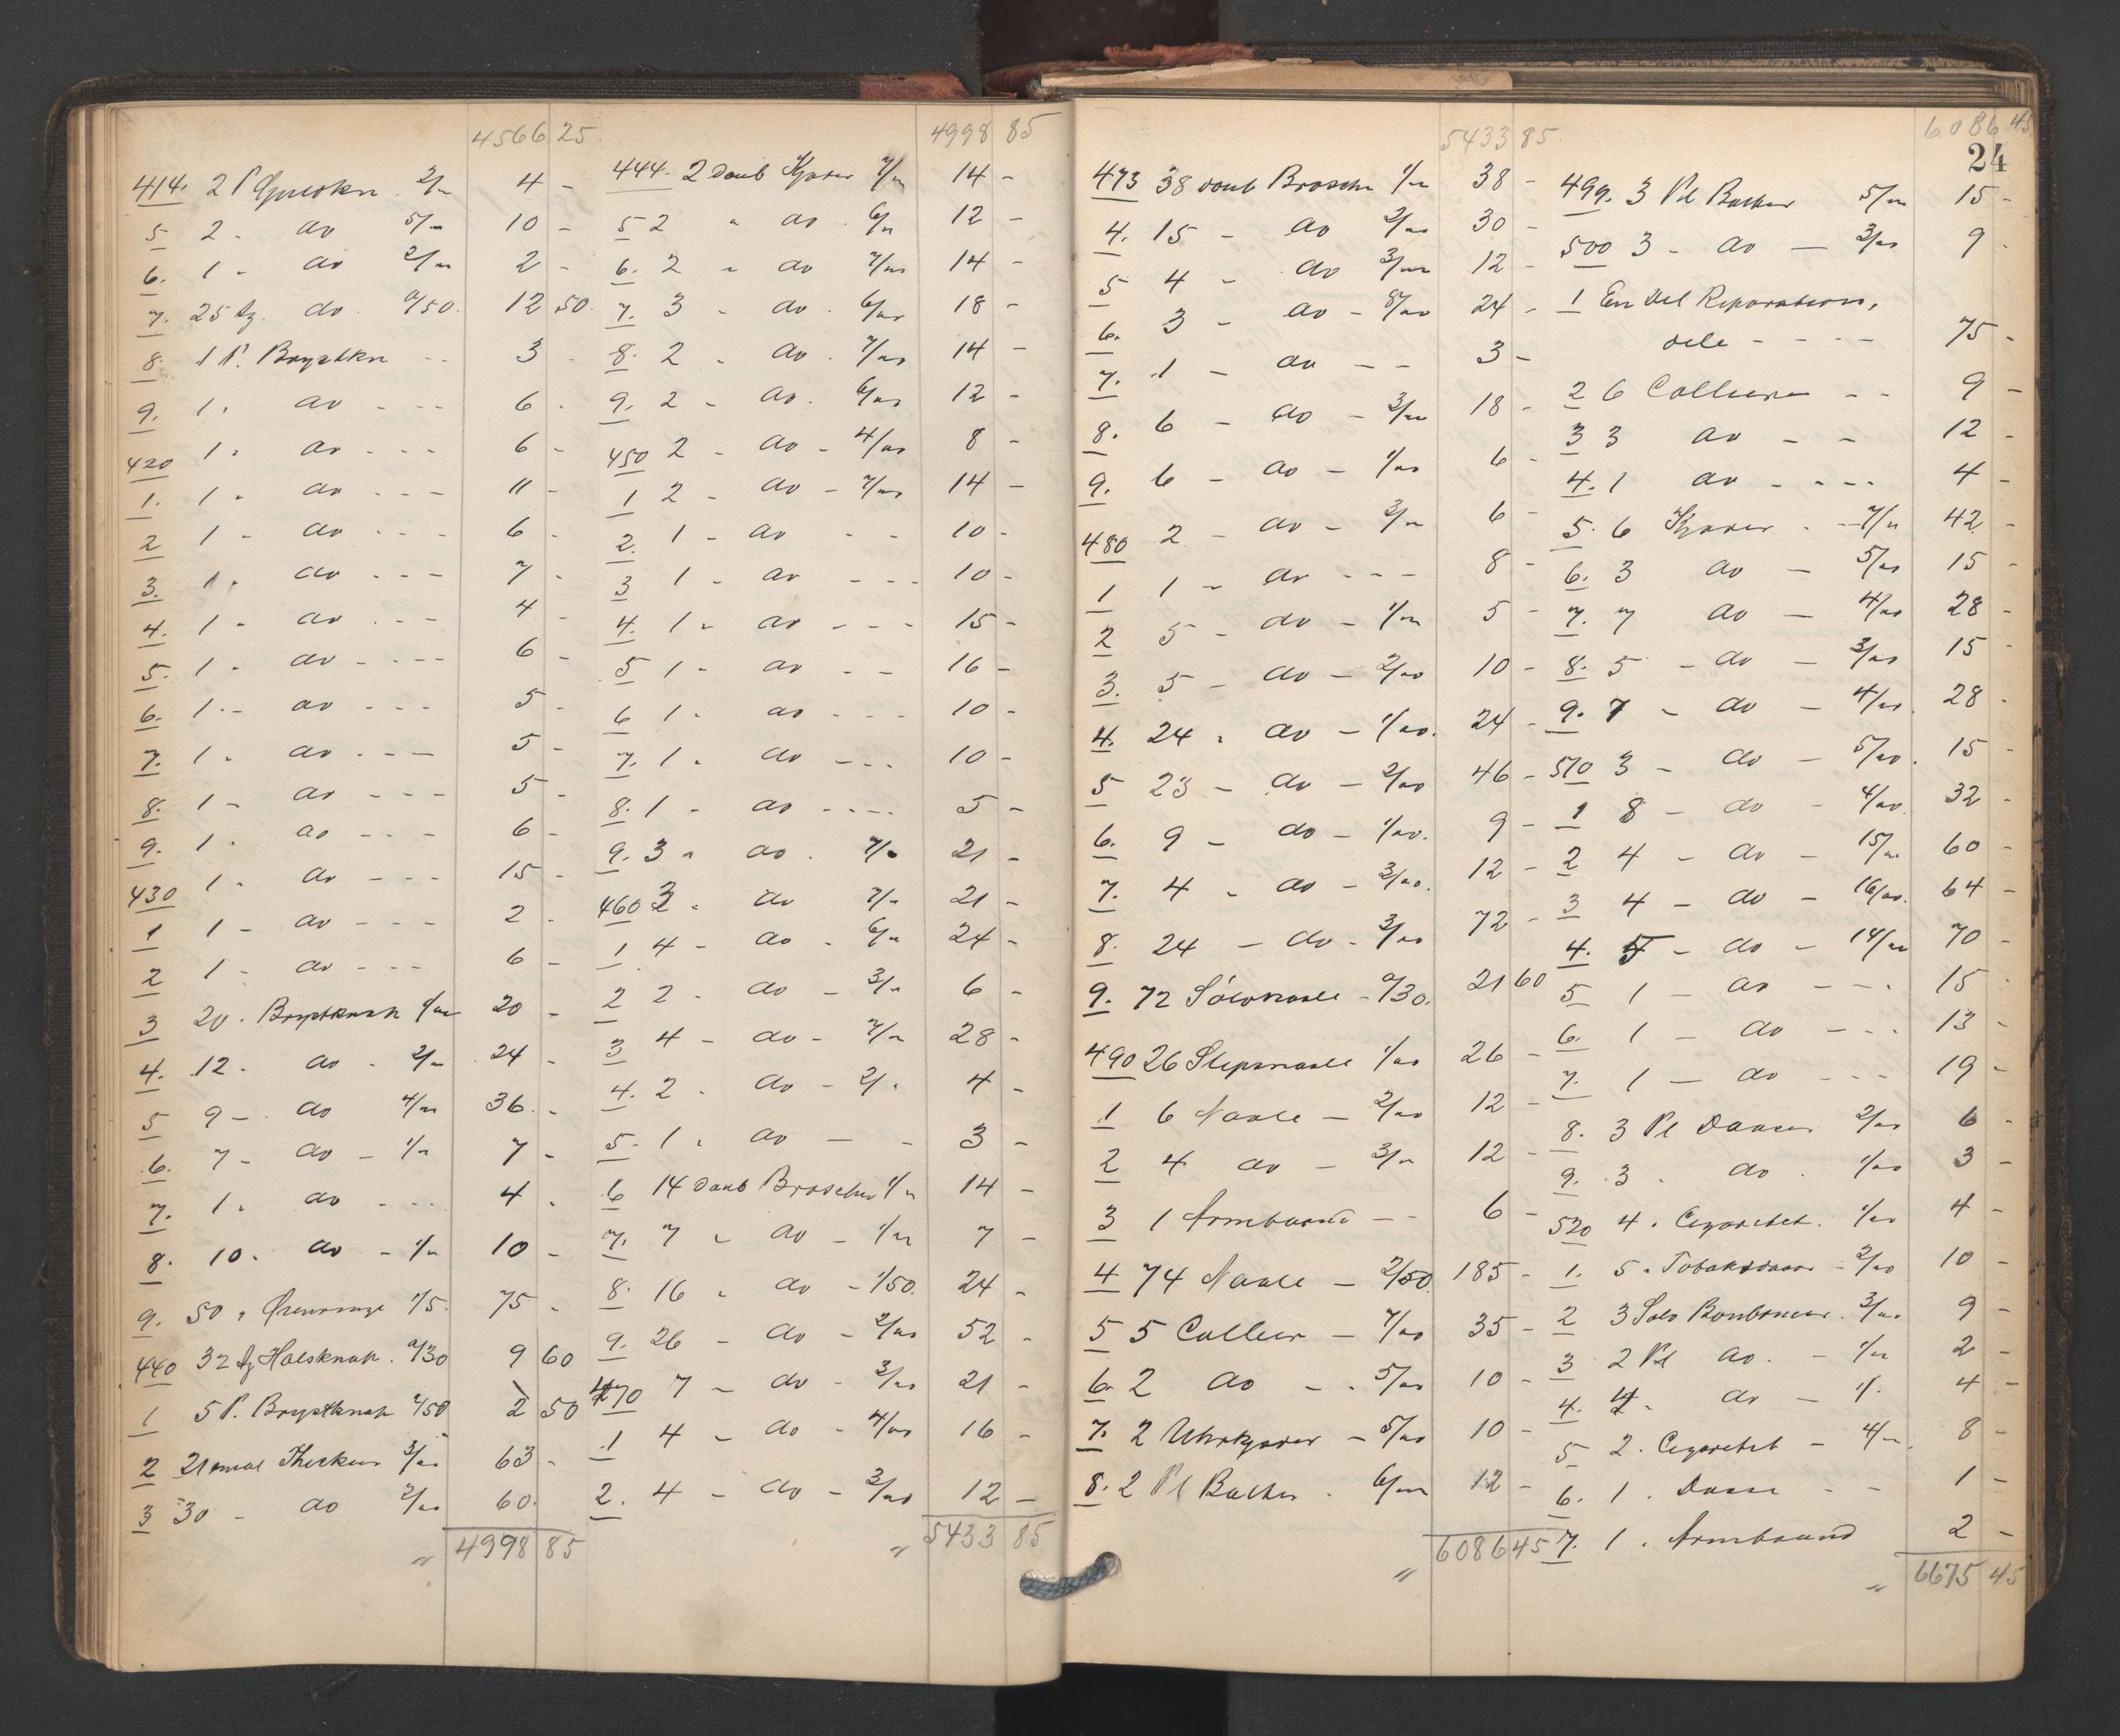 4566 25
414. 2 P 2/" 4 -
5 2 - do 5/" 10 -
6. 1 - do 2/" 2 -
7. 25 do 0/50. 12 50.
8. 1 P. Brystkn - - 3 -
9. 1. do - - - 6 -
420 1. do - - - 6 -
1. 1 - do - - - 11 -
2 1 - do - - - 6 -
3. 1. do - - - 7 -
4. 1 - do - - - 4 -
5. 1 - do - - - 6 -
6. 1 - do - - - 5 -
7. 1 - do - - - 5 -
8. 1 - do - - - 5 -
9. 1 - do - - - 6 -
430 1 - do - - - 15 -
1 1 - do - - - 2 -
2 1 - do - - - 6 -
3 20 - Brystknap 1/" 20 -
4. 12 - do - 2/" 24 -
5 9 - do 4/" 36 -
6. 7 - do - 1/" 7 -
7. 1 - do - - - 4 -
8. 10 - do - 1/" 10 -
9. 50 " Ørenringe 1/5. 75 -
440 32 Halsknap. 0/30 9 60
1 5 P. Brystknap 0/50 2 50
2 21 3/" 63 -
3 30 - do 2/" 60.
" 4998 85
4998 85
444. 2 Doub Kjæder 7/" 14 -
5 2 " do 6/" 12 -
6. 2 - do 7/" 14 -
7. 3 - do. 6/" 18 -
8. 2 - do. 7/" 14 -
9. 2 - do. 6/" 12 -
450 2 - do - 4/" 8 -
1 2 - do - 7/" 14 -
2. 1 - do - - 10 -
3 1 - do - - - 10 -
4. 1 - do - - - 15 -
5 1 - do - - 16 -
6 1 - do - - - 10 -
7. 1 - do - - - 10 -
8. 1 - do - - - 5 -
9. 3 " do. 7/" 21 -
460 3 - do 7/" 21 -
1 4 - do - 6/" 24 -
2 2 - do - 3/" 6 -
3 4 - do - 7/" 28 -
4. 2 - do - 2/" 4 -
5. 1 - do - - 3 -
6 14 Doub Broscher 1/" 14 -
7. 7 - do - 1/" 7 -
8. 16 - do - 1/50. 24 -
9. 26 - do - 2/" 52 -
470 7 - do - 3/" 21 -
1 4 - do - 4/" 16 -
2. 4 - do - 3/" 12 -
" 5433 85
5433 85.
473 38 Doub Brosche 1/" 38 -
4. 15 - do 2/" 30 -
5 4 - do 3/" 12 -
6. 3 - do - 8/" 24 -
7. 1 - do - - 3 -
8. 6 - do - 3/" 18 -
9. 6 - do - 1/" 6 -
480 2 - do - 3/" 6 -
1 1 - do - - - 8 -
2 5 - do - 1/" 5 -
3. 5 - do - 2/" 10 -
4. 24 - do - 1/". 24 -
5 23 - do - 2/" 46 -
6. 9 - do - 1/". 9 -
7. 4 - do - 3/". 12 -
8. 24 - do - 3/" 72 -
9. 72 Sølvnaale - 0/30. 21 60
490 26 Slipsnaale 1/" 26 -
1 6 Naale - 2/" 12 -
2 4 do - 3/" 12 -
3 1 Armbaand - - 6 -
4 74 Naale - 2/50. 185 -
5 5 Collier - 7/" 35 -
6. 2 do - - 5/" 10 -
7. 2 Uhrkjæder - 5/" 10 -
8. 2 Pl Bakker - 6/" 12 -
" 6086 45
6086 45
24
499. 3 Pl Bakker 5/" 15 -
500 3 - do - 3/" 9 -
1 En Del Reparations,
dele - - - - 75 -
2 6 Colliere - - 9 -
3 3 do - - 12 -
4. 1 do - - - - 4 -
5. 6 Kjæder - - 7/" 42 -
6. 3 do - 5/" 15 -
7. 7 do - 4/" 28 -
8. 5 - do - 3/" 15 -
9. 7 - do - 4/". 28 -
510 3 - do - 5/". 15 -
1 8 - do - 4/". 32 -
2 4 - do - 15/" 60 -
3 4 - do - 16/". 64 -
4. 5 - do - 14/" 70 -
5 1 - do - - - 15 -
6. 1 - do - - - 13 -
7. 1 - do - - - 19 -
8. 3 Pl Daaser 2/" 6 -
9. 3 . do . 1/" 3 -
520 4 . Cigaretet. 1/" 4 -
1. 5 " Tobaksdaase - 2/" 10 -
2 3 Sølv Bonbonier. 3/" 9 -
3 2 Pl do. - 1/" 2 -
4. 4 - do - 1/. 4 -
5 2. Cigaretet - 4/". 8 -
6. 1 . Daase - - 1 -
7. 1 . Armbaand 2 -
" 6675 45